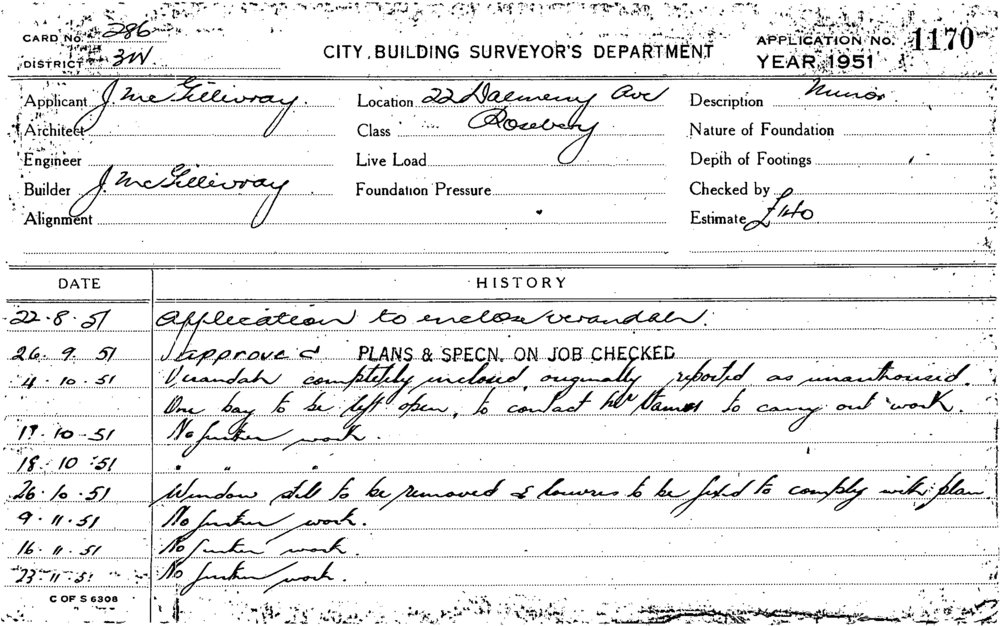 CARD No. 286
DISTRICT 3W
CITY BUILDING SURVEYOR'S DEPARTMENT
APPLICATION No. 1170
YEAR 1951
Applicant J McGillivray
Architect
Engineer
Builder J McGillivray
Alignment
Location 22 Dalmeny Ave
Class Rosebery
Live Load
Foundation Pressure
Description Minor
Nature of Foundation
Depth of Footings
Checked by
Estimate £140
DATE HISTORY
22.8.51 Application to enclose verandah.
26.9.51 approved PLANS & SPECN. ON JOB CHECKED
4.10.51 Verandah completely inclosed, originally reported as unauthorised.
One bay to be left open, to contact to carry out work.
17.10.51 No further work.
18.10.51 " " "
26.10.51 Window still to be removed & louvres to be fixed to comply with plan
9.11.51 No further work.
16.11.51 No further work.
23.11.51 No further work.
C OF S 6308